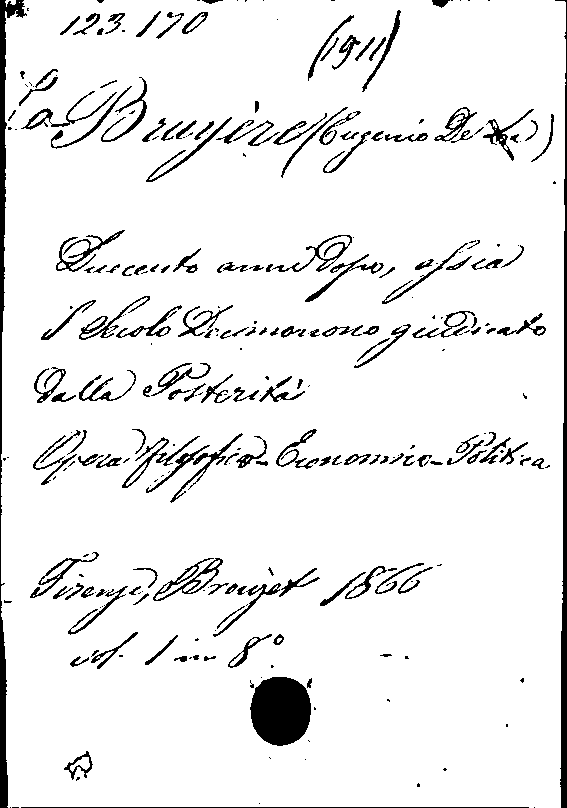 123.170
(1911)
La Bruyère (Eugenio De)
Duecento anni dopo, ossia
il Secolo Decimonono giudicato
dalla Posterità
Opera filosofico-Economico-Politica
Firenze, 1866
vol. 1 in 8°